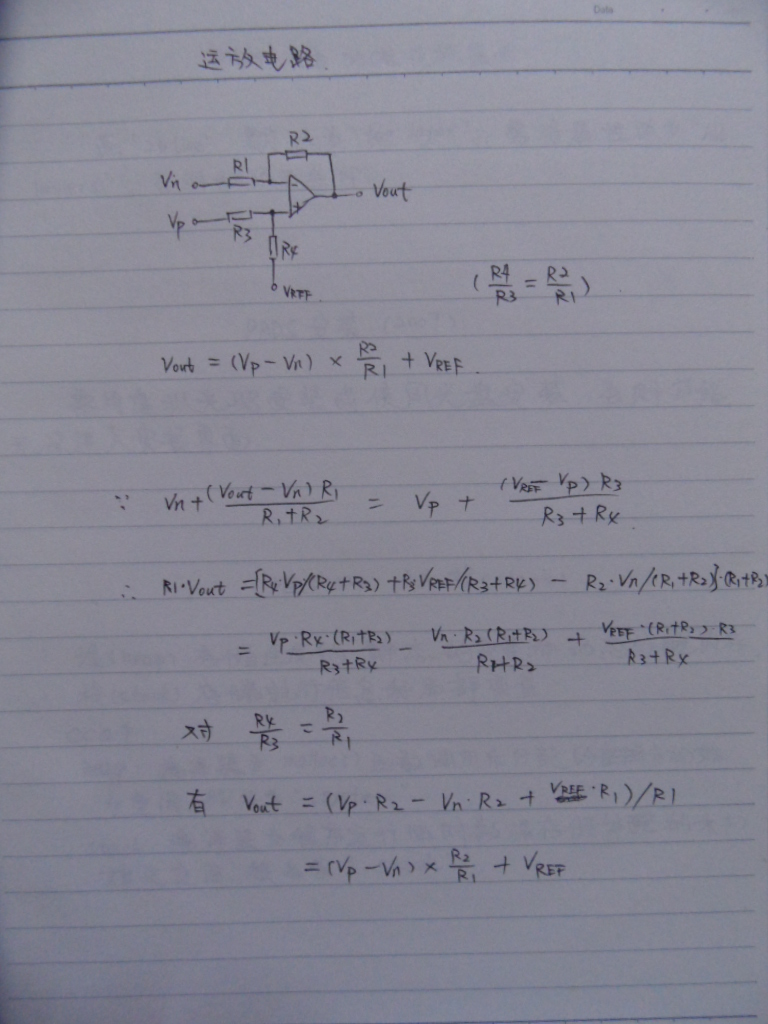 Date
运放电路
R2
R1
Vn
Vout
Vp
R3
R4
VREF
(R4/R3 = R2/R1)
Vout = (Vp - Vn) × R2/R1 + VREF.
∵ Vn + (Vout - Vn) R1/(R1+R2) = Vp + (VREF - Vp) R3/(R3+R4)
∴ R1·Vout = [R4·Vp/(R4+R3) + R3 VREF/(R3+R4) - R2·Vn/(R1+R2)]·(R1+R2)
= Vp·R4·(R1+R2)/(R3+R4) - Vn·R2(R1+R2)/(R1+R2) + VREF·(R1+R2)·R3/(R3+R4)
对 R4/R3 = R2/R1
有 Vout = (Vp·R2 - Vn·R2 + VREF·R1)/R1
= (Vp - Vn) × R2/R1 + VREF